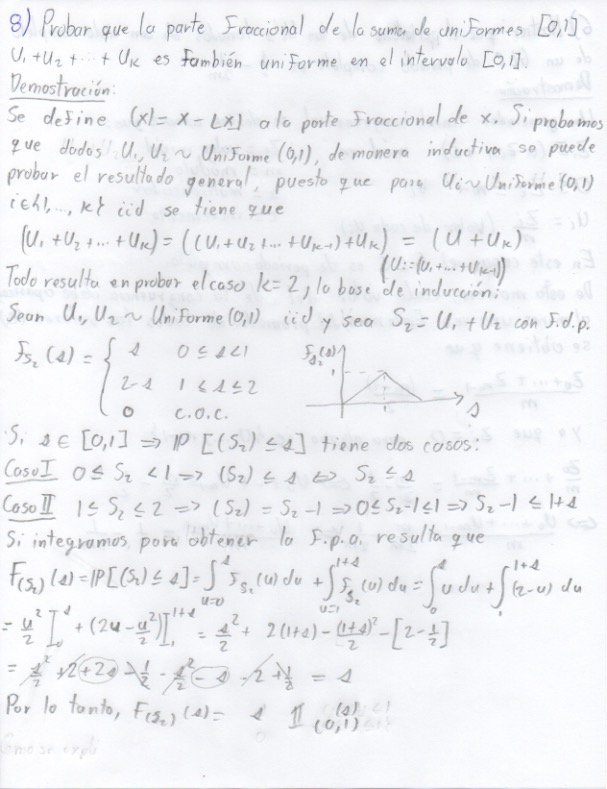 8) Probar que la parte Fraccional de la suma de uniformes [0,1]
U₁+U₂+···+Uₖ es también uniforme en el intervalo [0,1].
Demostración:
Se define (x)= x - ⌊x⌋ a la parte Fraccional de x. Si probamos
que dados U₁, U₂ ~ Uniforme (0,1), de manera inductiva se puede
probar el resultado general, puesto que para Uᵢ ~ Uniforme (0,1)
i∈{1,..., k} iid se tiene que
(U₁+U₂+...+Uₖ) = ((U₁+U₂+...+Uₖ₋₁)+Uₖ) = (U+Uₖ)
(U:=(U₁+...+Uₖ₋₁))
Todo resulta en probar el caso k=2, la base de inducción:
Sean U₁, U₂ ~ Uniforme (0,1) iid y sea S₂ = U₁+U₂ con f.d.p.
f_S₂(s) = { s 0≤s<1
2-s 1≤s≤2
0 c.o.c.
f_S₂(s)
1
1
s
Si s∈[0,1] ⇒ ℙ[(S₂)≤s] tiene dos casos:
Caso I 0≤S₂<1 ⇒ (S₂)≤s ⇔ S₂≤s
Caso II 1≤S₂≤2 ⇒ (S₂)=S₂-1 ⇒ 0≤S₂-1≤1 ⇒ S₂-1≤1+s
Si integramos, para obtener la F.p.a. resulta que
F_(S₂)(s)=ℙ[(S₂)≤s]=∫_{u=0}^{s} f_S₂(u)du + ∫_{u=1}^{1+s} f_S₂(u)du = ∫_0^s u du + ∫_1^{1+s} (2-u) du
= u²/2 ]_0^s + (2u - u²/2)]_1^{1+s} = s²/2 + 2(1+s) - (1+s)²/2 - [2 - 1/2]
= s²/2 + 2 + 2s - 1/2 - s²/2 - s - 2 + 1/2 = s
Por lo tanto, F_(S₂)(s) = s 𝟙_(0,1)(s)